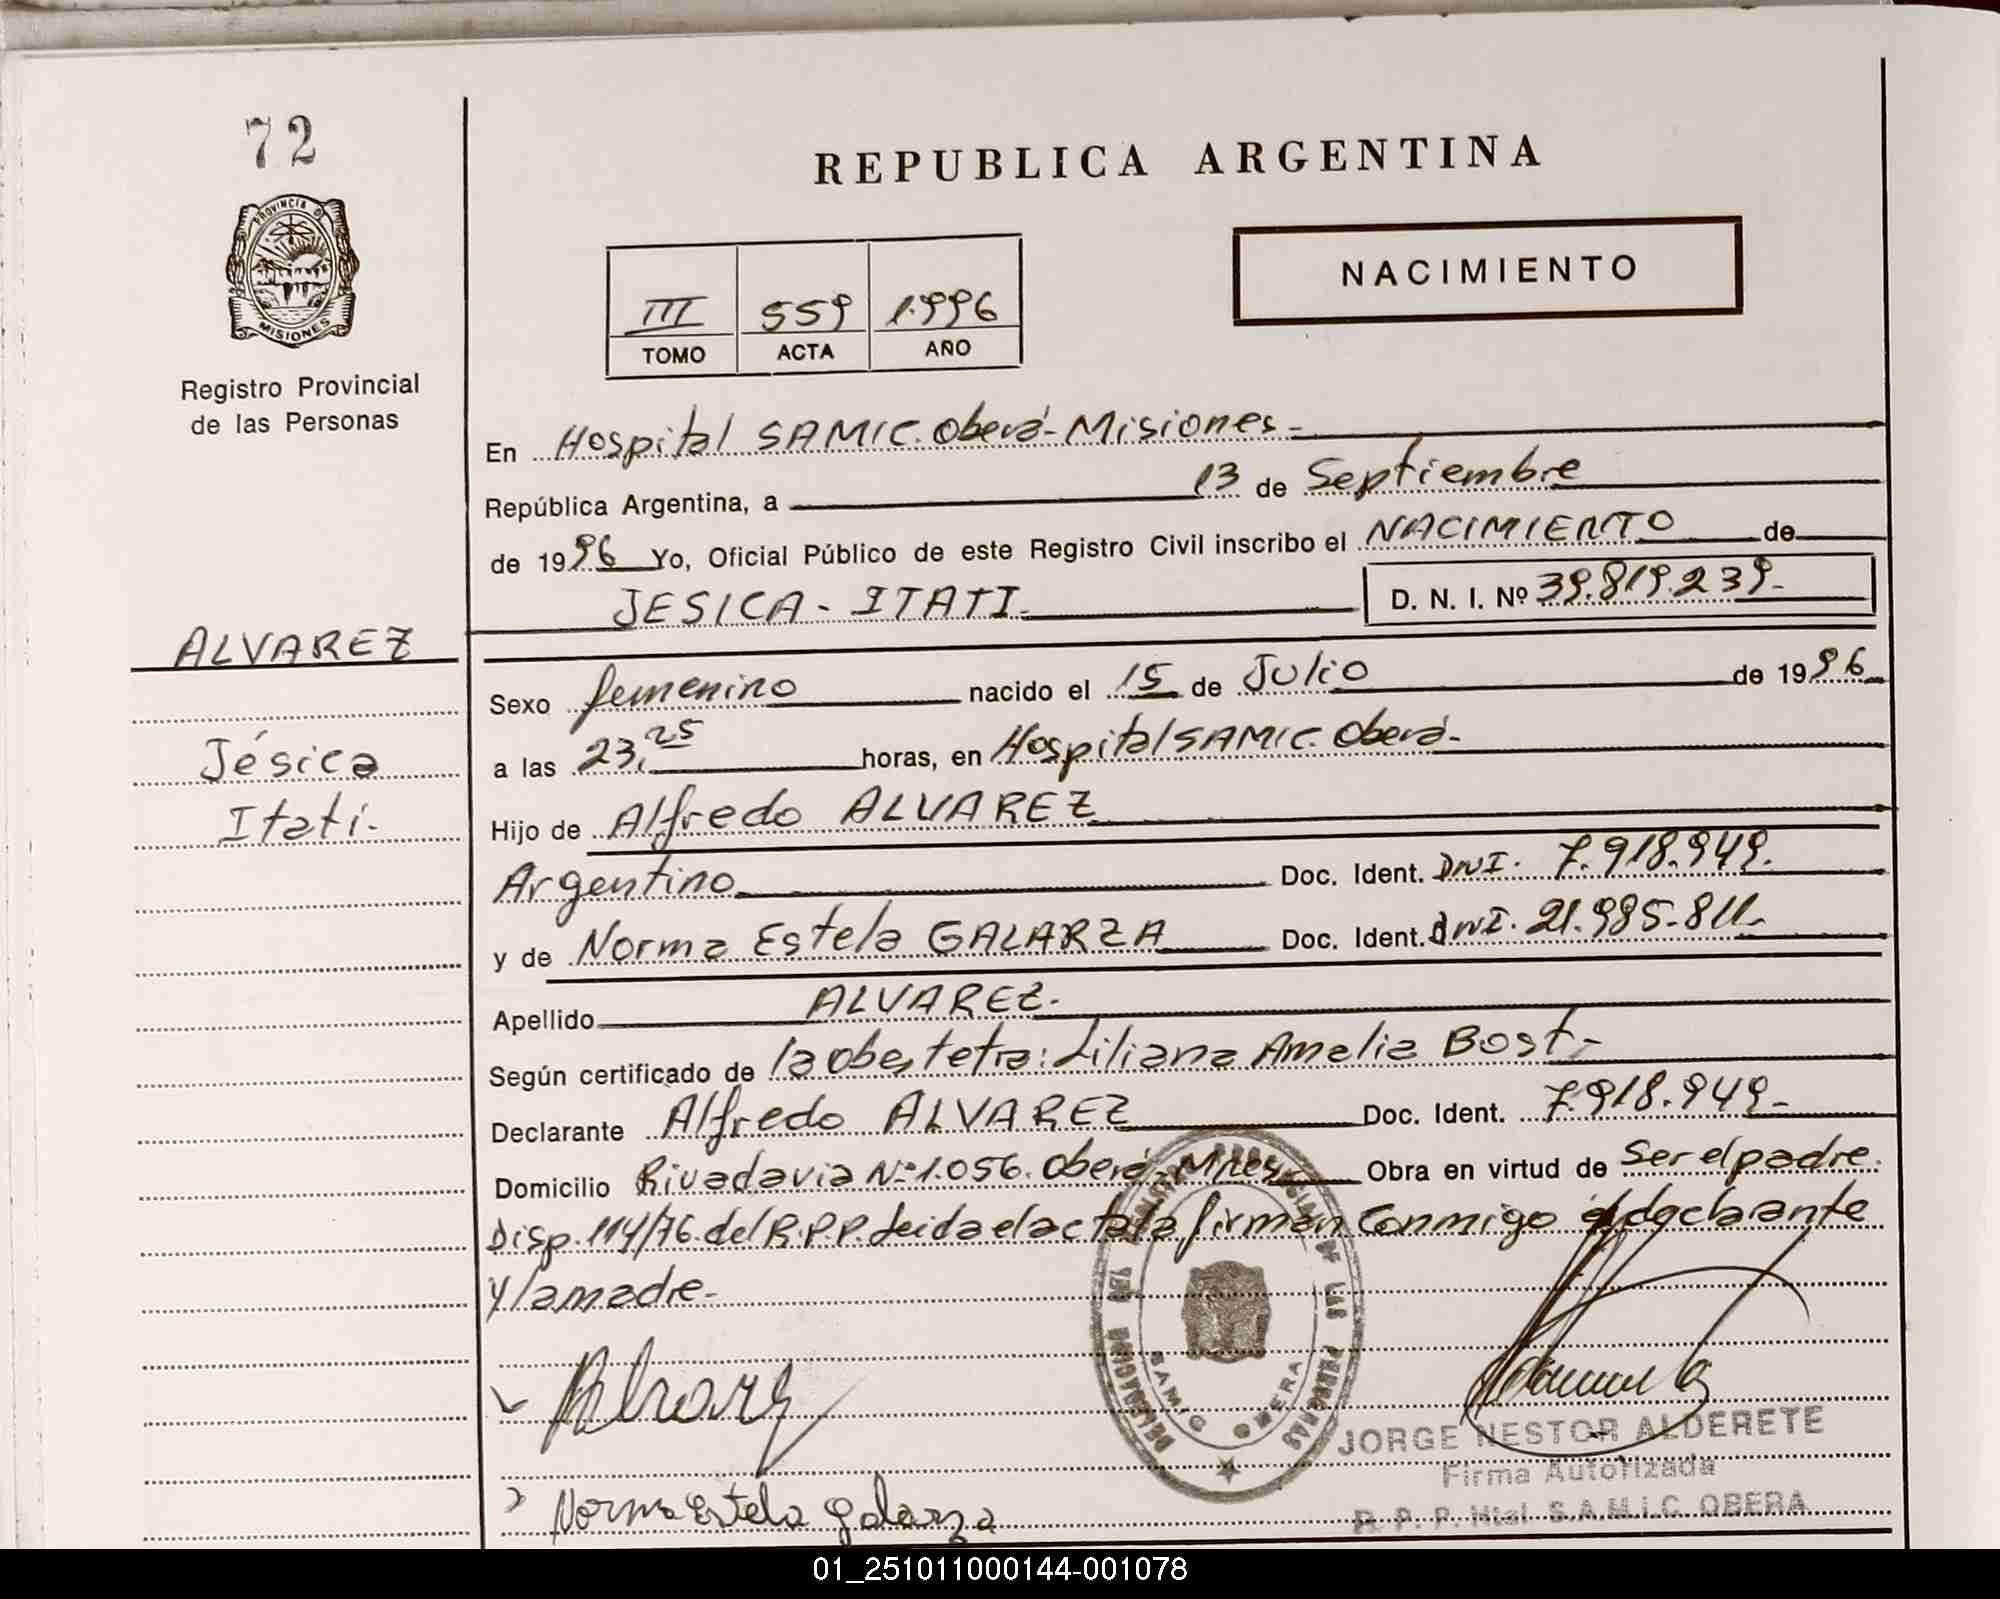 72
PROVINCIA DE
MISIONES
Registro Provincial
de las Personas
ALVAREZ
Jésica
Itatí.
REPUBLICA ARGENTINA
NACIMIENTO
III 559 1.996
TOMO ACTA AÑO
En Hospital SAMIC. Oberá-Misiones-
República Argentina, a 13 de Septiembre
de 1996 Yo, Oficial Público de este Registro Civil inscribo el NACIMIENTO de
JESICA - ITATI. D. N. I. Nº 39.819.239-
Sexo femenino nacido el 15 de Julio de 1996
a las 23,25 horas, en Hospital SAMIC. Oberá-
Hijo de Alfredo ALVAREZ
Argentino Doc. Ident. DNI. 7.918.949.
y de Norma Estela GALARZA Doc. Ident. DNI. 21.985.811-
Apellido ALVAREZ.
Según certificado de la obstetra: Liliana Amelia Bost,-
Declarante Alfredo ALVAREZ Doc. Ident. 7.918.949-
Domicilio Rivadavia Nº 1.056. Oberá-Mnes Obra en virtud de Ser el padre.
Disp. 114/76. del R.P.P. Leida el acta la firman Conmigo el declarante
y la madre-
Norma Estela Galarza
DE LAS PERSONAS
SAMIC OBERA
JORGE NESTOR ALDERETE
Firma Autorizada
R. P. P. Htal. S.A.M.I.C. OBERA
01_251011000144-001078